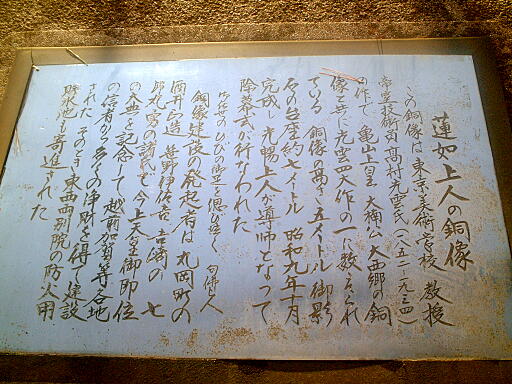 蓮如上人の銅像
この銅像は東京美術学校教授
帝室技芸員高村光雲氏(一八五二〜一九三四)
の作で 亀山上皇 大楠公 大西郷の銅
像と共に光雲四大作の一に数えられ
ている 銅像の高さ五メートル 御影
石の台座約七メートル 昭和九年十月
完成し 光暢上人が導師となって
除幕式が行なわれた
御 の ひびの 思ひ 句佛上人
銅像建設の発起者は 丸岡町の
酒井 吉崎の 七
郎丸 の諸氏で 今上天皇御即位
の大典を記念して 越前加賀等各地
の信者から多くの浄財を得て建設
された そのとき東西両別院の防火用
貯水池も寄進された